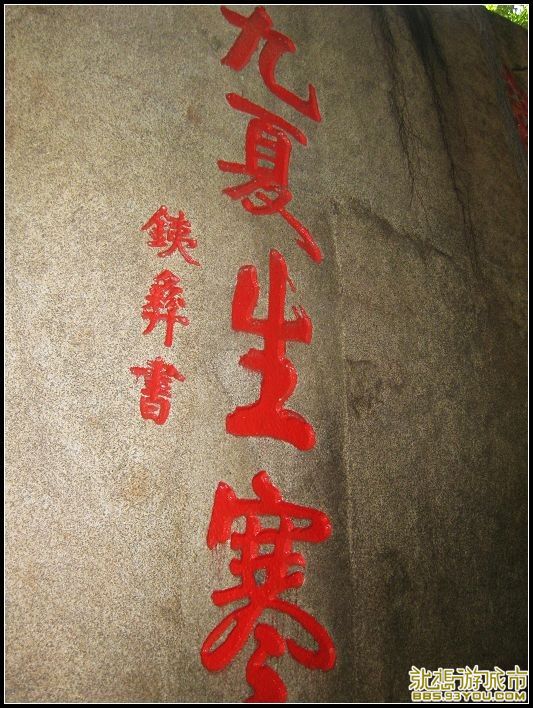 九夏生寒
銕彝書
就想游城市
885.93YOU.COM